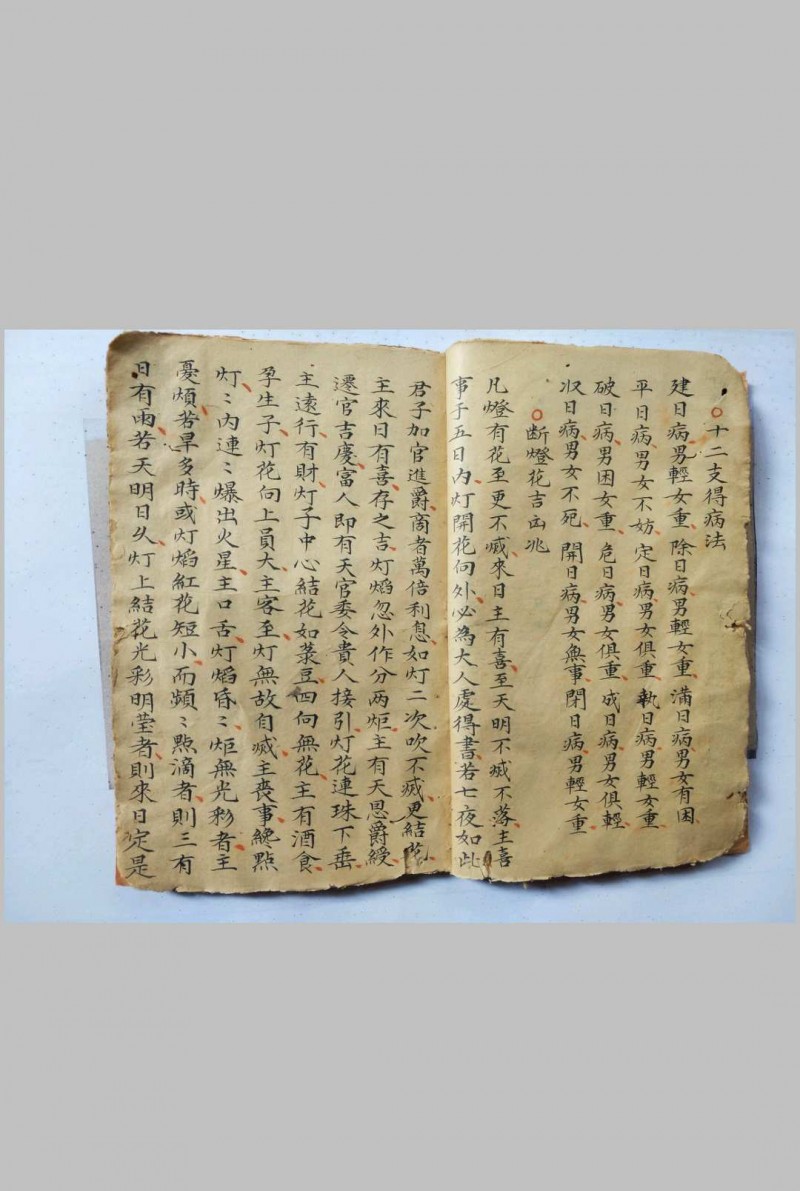 ○十二支得病法
建日病男輕女重 除日病男輕女重 滿日病男女有困
平日病男女不妨 定日病男女俱重 執日病男輕女重
破日病男困女重 危日病男女俱重 成日病男女俱輕
収日病男女不死 開日病男女無事 閉日病男輕女重
○断燈花吉凶兆
凡燈有花至更不滅來日主有喜至天明不滅不落主喜
事于五日内灯開花向外必為大人處得書若七夜如此
君子加官進爵商者萬倍利息如灯二次吹不滅更結花
主來日有喜存之吉灯熖忽外作分两炬主有天恩爵綬
遷官吉慶富人即有天官委令貴人接引灯花連珠下垂
主遠行有財灯子中心結花如菉豆四向無花主有酒食
孕生子灯花向上員大主客至灯無故自滅主喪事纔點
灯〻内連〻爆出火星主口舌灯熖昏〻炬無光彩者主
憂煩若旱多時或灯熖紅花短小而頻〻點滴者則三有
日有雨若天明日久灯上結花光彩明莹者則來日定是